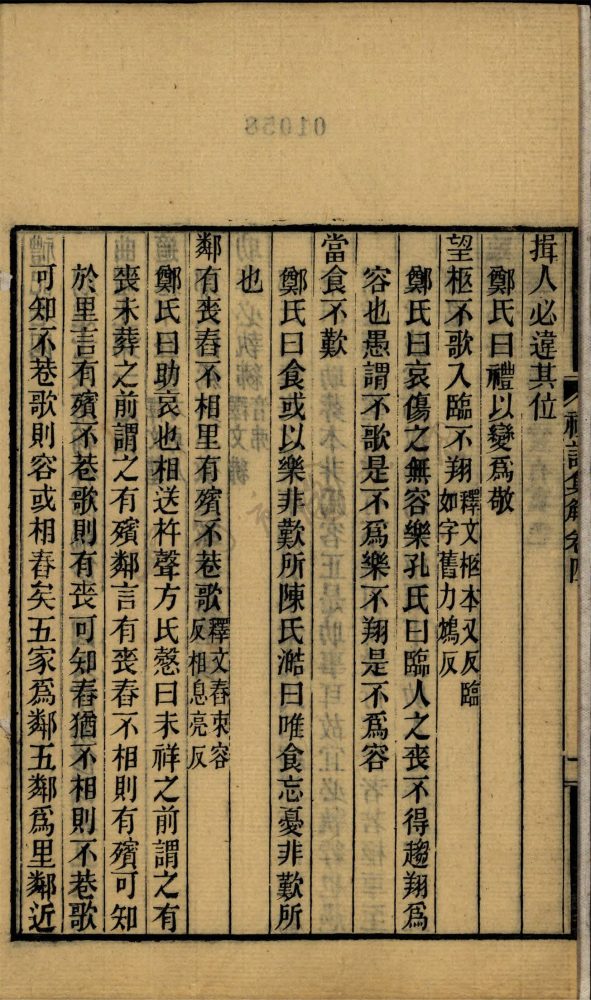 揖人必違其位
鄭氏曰禮以變爲敬
望柩不歌入臨不翔釋文柩本又反臨如字舊力鴆反
鄭氏曰哀傷之無容樂孔氏曰臨人之喪不得趨翔爲
容也愚謂不歌是不爲樂不翔是不爲容
當食不歎
鄭氏曰食或以樂非歎所陳氏澔曰唯食忘憂非歎所
也
鄰有喪舂不相里有殯不巷歌釋文舂束容反相息亮反
鄭氏曰助哀也相送杵聲方氏慤曰未祥之前謂之有
喪未葬之前謂之有殯鄰言有喪舂不相則有殯可知
於里言有殯不巷歌則有喪可知舂猶不相則不巷歌
可知不巷歌則容或相舂矣五家爲鄰五鄰爲里鄰近
禮記集解卷四
01058